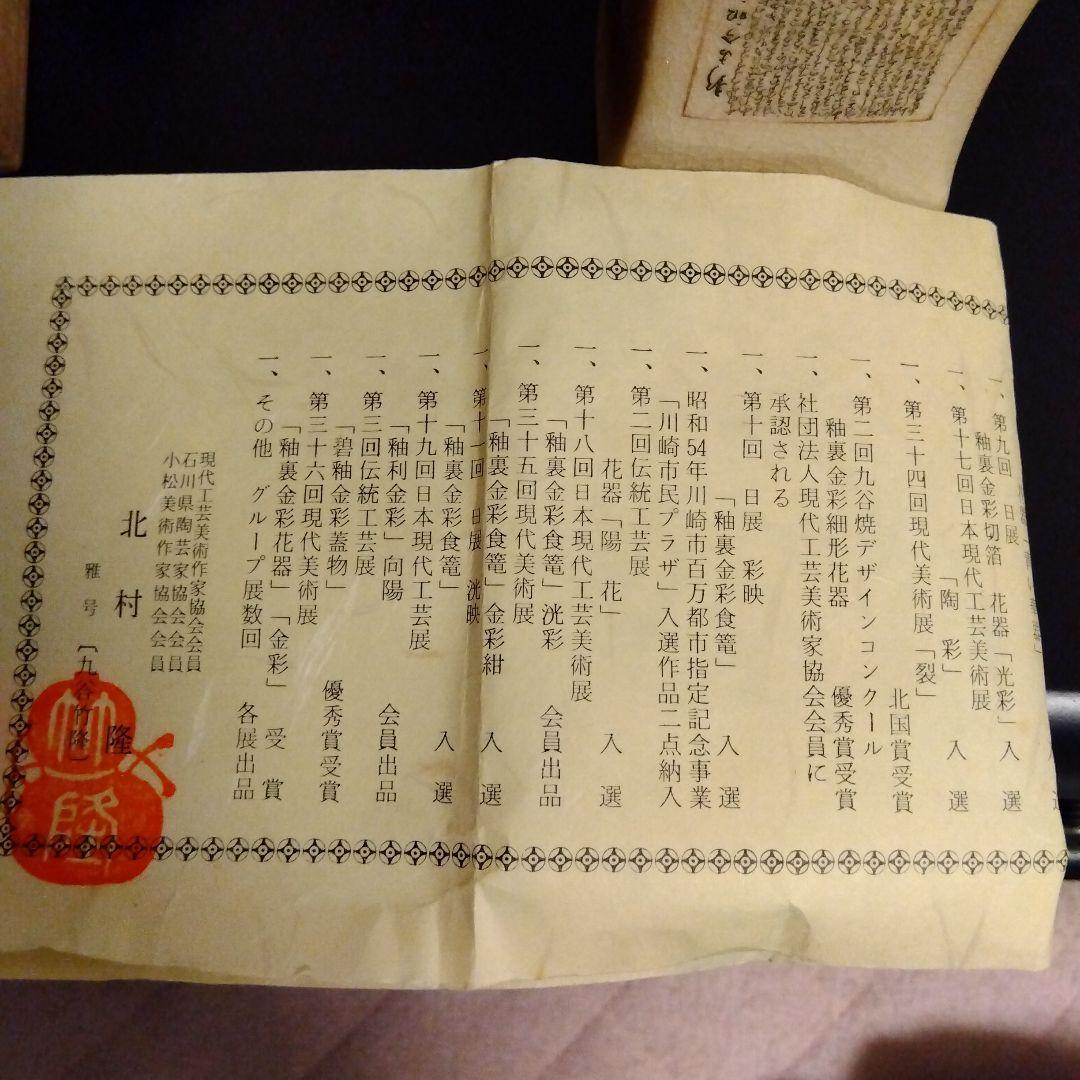 一、第九回 日展 花器「光彩」 入選
釉裏金彩切箔
一、第十七回日本現代工芸美術展
「陶 彩」 入選
一、第三十四回現代美術展「裂」
北国賞受賞
一、第二回九谷焼デザインコンクール
釉裏金彩細形花器 優秀賞受賞
一、社団法人現代工芸美術家協会会員に
承認される
一、第十回 日展 彩映
「釉裏金彩食篭」 入選
一、昭和54年川崎市百万都市指定記念事業
「川崎市民プラザ」入選作品二点納入
一、第二回伝統工芸展
花器「陽 花」 入選
一、第十八回日本現代工芸美術展
「釉裏金彩食篭」洸彩 会員出品
一、第三十五回現代美術展
「釉裏金彩食篭」金彩紺 入選
一、第十一回 日展 洸映
「釉裏金彩食篭」 入選
一、第十九回日本現代工芸展
「釉利金彩」向陽 会員出品
一、第三回伝統工芸展
「碧釉金彩蓋物」 優秀賞受賞
一、第三十六回現代美術展
「釉裏金彩花器」「金彩」 受賞
一、その他 グループ展数回 各展出品
現代工芸美術作家協会会員
石川県陶芸家協会会員
小松美術作家協会会員
北村 隆
雅号〔九谷竹隆〕